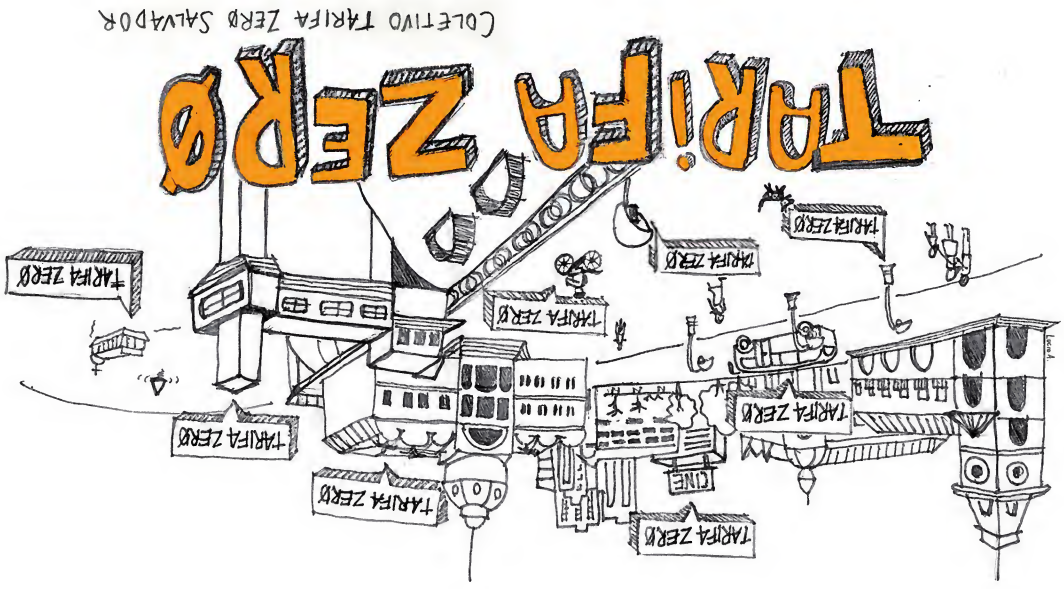 TARIFA ZERØ
TARIFA ZERØ
CINE
TARIFA ZERØ
TARIFA ZERØ
TARIFA ZERØ
TARIFA ZERØ
TARIFA ZERØ
TARIFA ZERØ
TARiFA ZERØ
COLETIVO TARIFA ZERØ SALVADOR